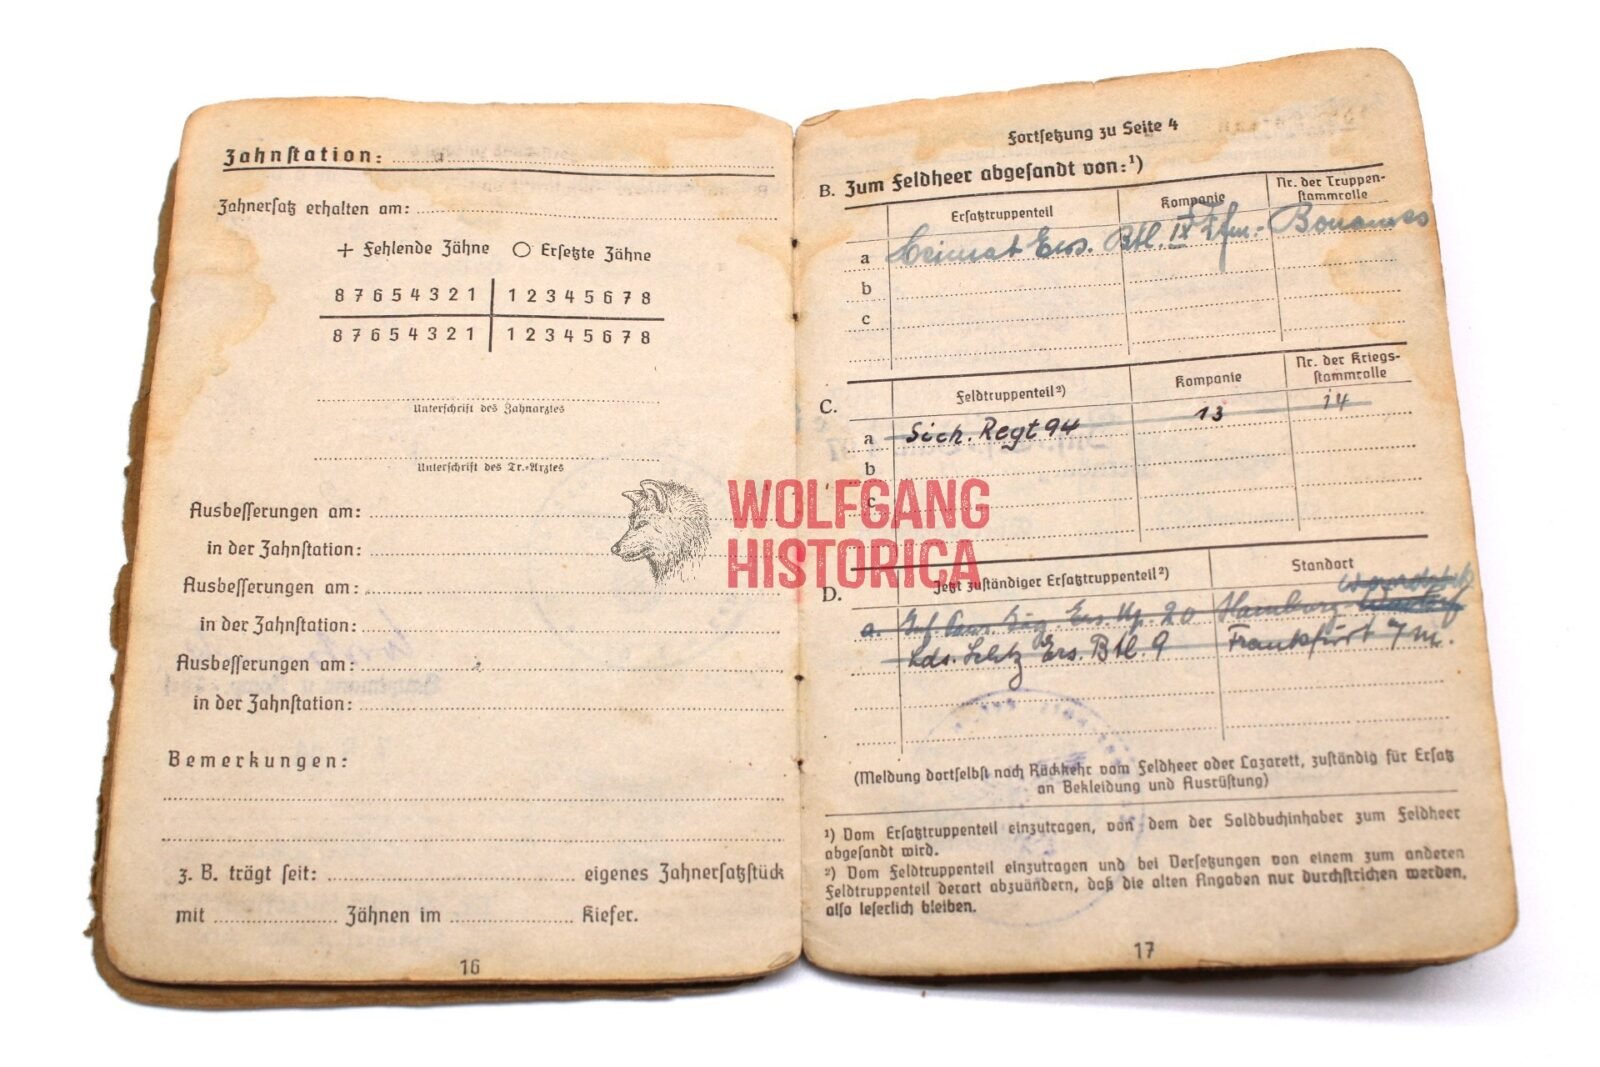 Zahnstation:
Zahnersatz erhalten am:
+ Fehlende Zähne ○ Ersetzte Zähne
8 7 6 5 4 3 2 1 | 1 2 3 4 5 6 7 8
8 7 6 5 4 3 2 1 | 1 2 3 4 5 6 7 8
Unterschrift des Zahnarztes
Unterschrift des Tr.-Arztes
Ausbesserungen am:
in der Zahnstation:
Ausbesserungen am:
in der Zahnstation:
Ausbesserungen am:
in der Zahnstation:
Bemerkungen:
z. B. trägt seit: eigenes Zahnersatzstück
mit Zähnen im Kiefer.
16
Fortsetzung zu Seite 4
B. Zum Feldheer abgesandt von:¹)
Ersatztruppenteil
Kompanie
Nr. der Truppen-
stammrolle
a Heimat Ers. Btl. IX Ffm.- Bonames
b
c
C.
Feldtruppenteil²)
Kompanie
Nr. der Kriegs-
stammrolle
a Sich. Regt 94 13 14
b
c
WOLFGANG
HISTORICA
D. Jetzt zuständiger Ersatztruppenteil²)
Standort
a. Ers. Kp. 20 Hamburg-
Lds. Schtz Ers. Btl. 9 Frankfurt / M.
(Meldung dortselbst nach Rückkehr vom Feldheer oder Lazarett, zuständig für Ersatz
an Bekleidung und Ausrüstung)
¹) Vom Ersatztruppenteil einzutragen, von dem der Soldbuchinhaber zum Feldheer
abgesandt wird.
²) Vom Feldtruppenteil einzutragen und bei Versetzungen von einem zum anderen
Feldtruppenteil derart abzuändern, daß die alten Angaben nur durchstrichen werden,
also leserlich bleiben.
17